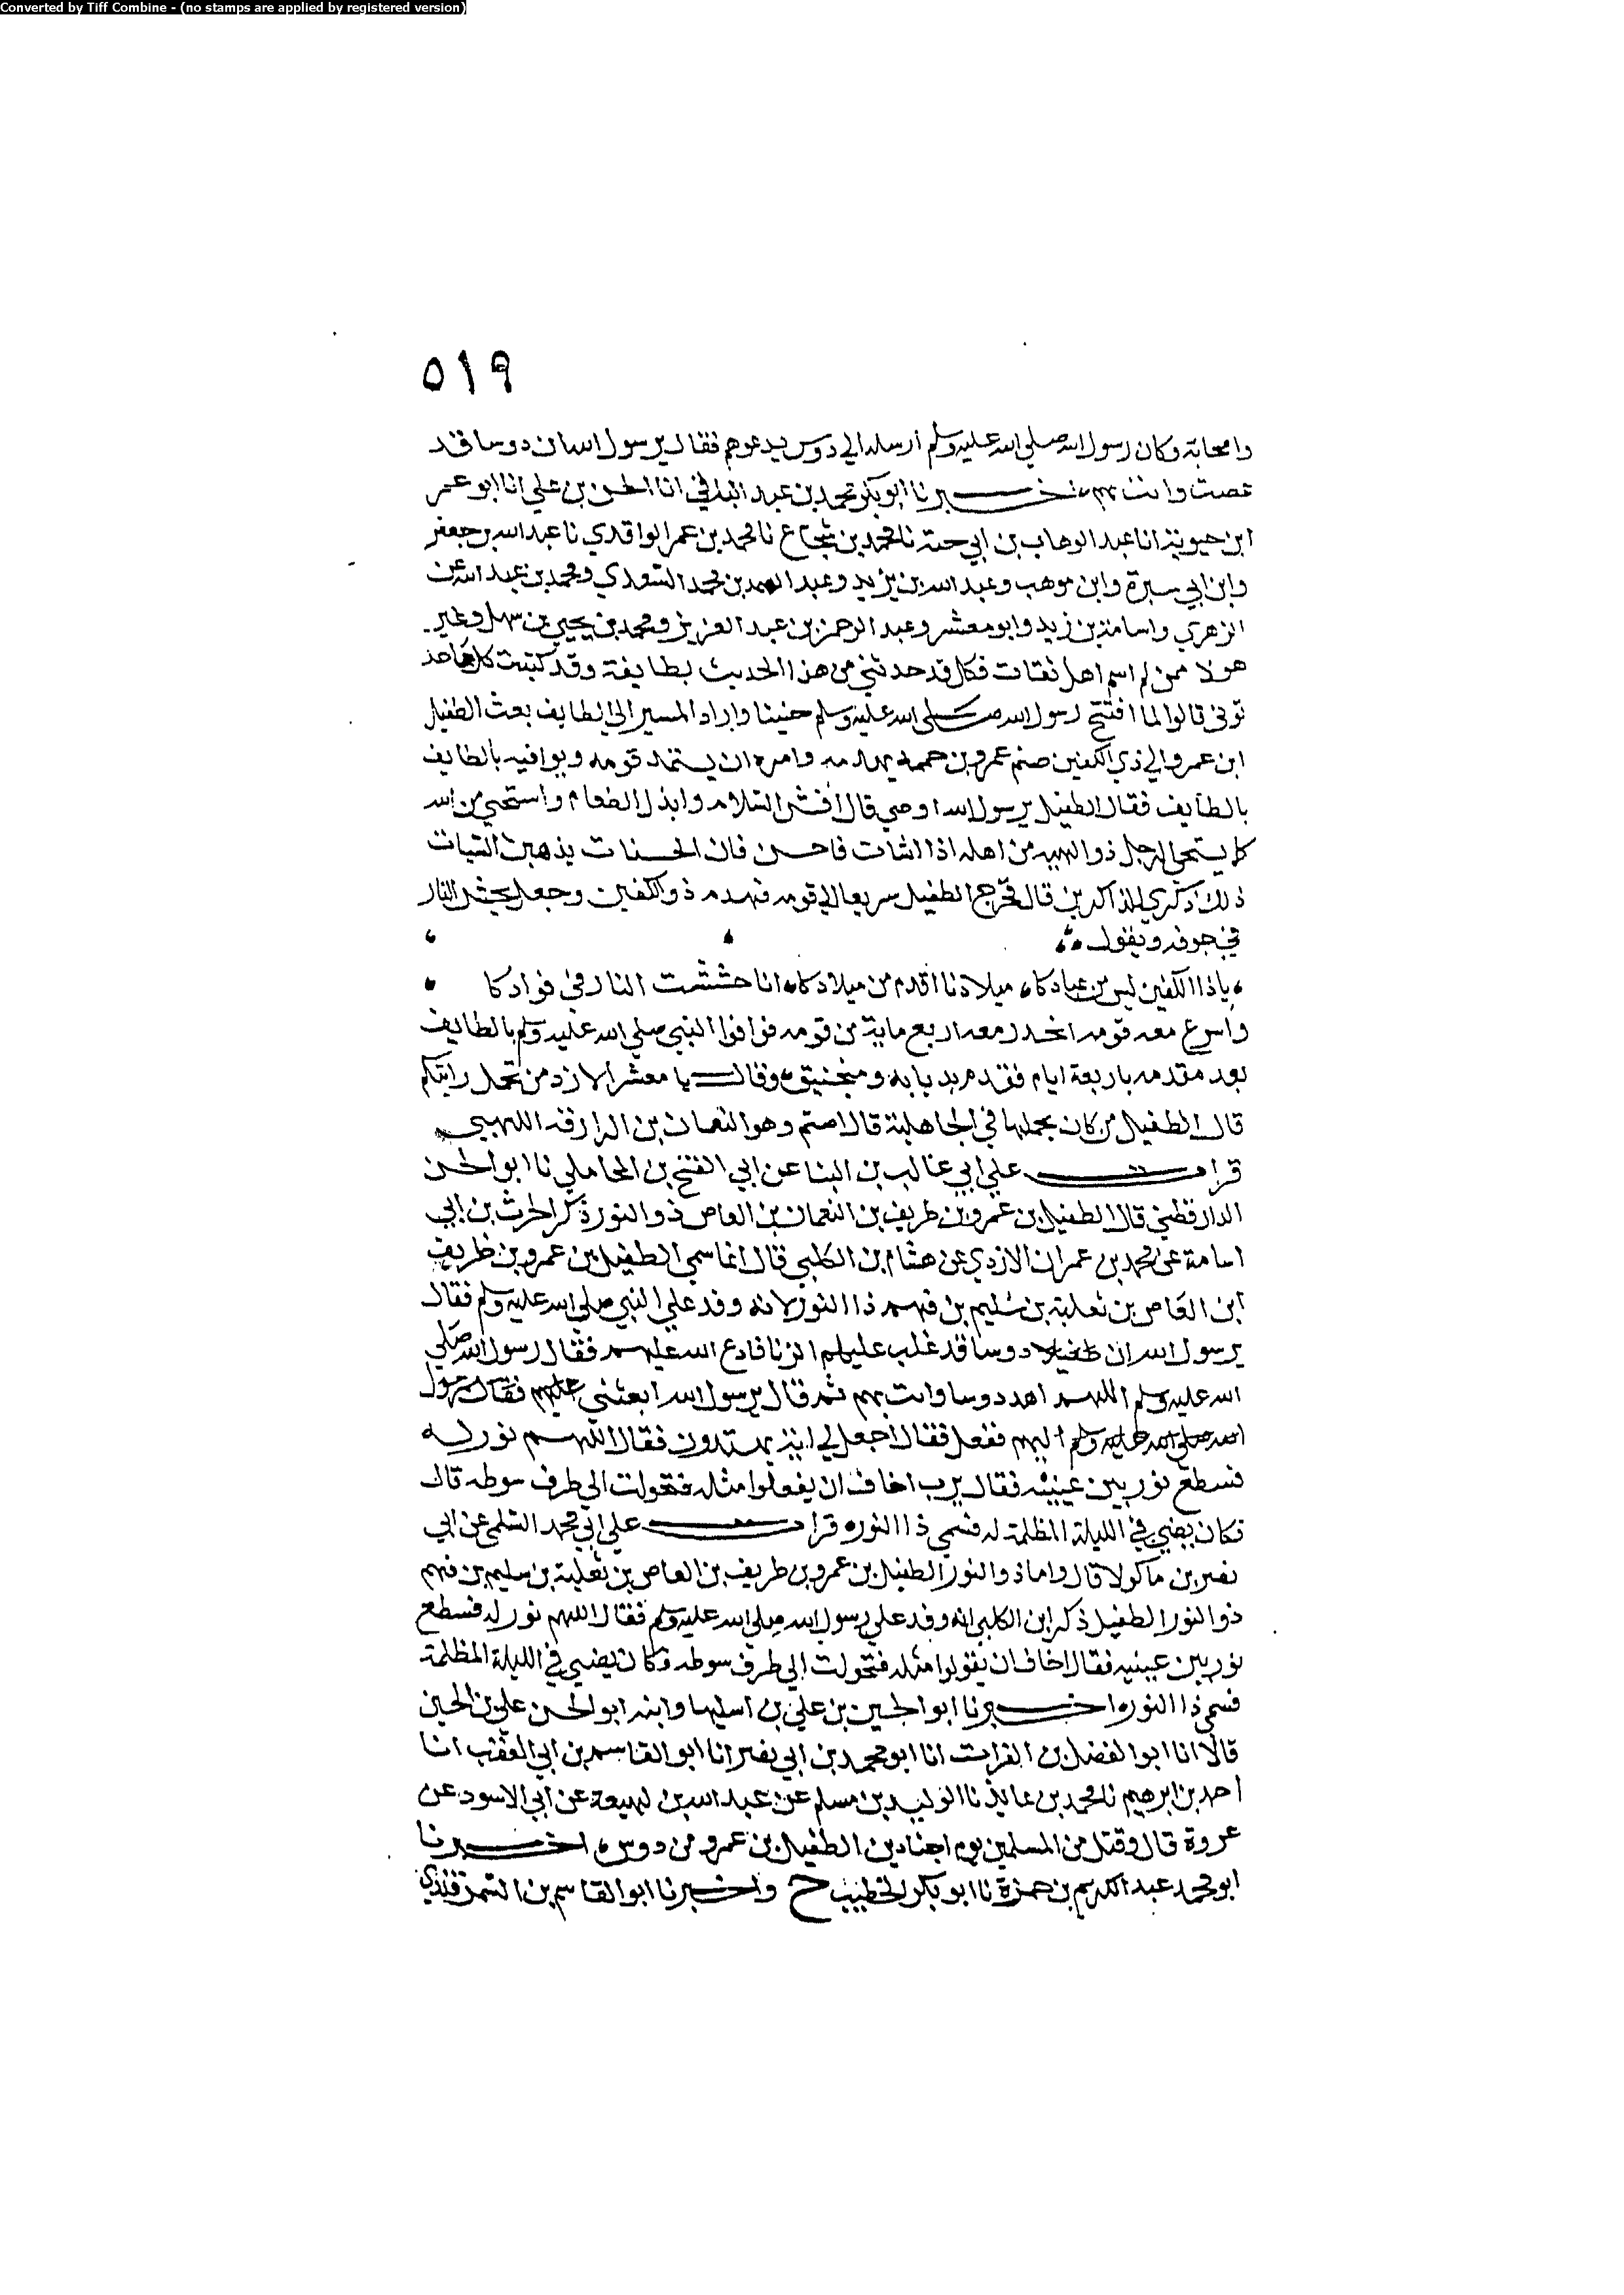 Converted by Tiff Combine - (no stamps are applied by registered version)
٥١٩
واصحابه وكان رسول الله صلي الله عليه وسلم ارسله الي دوس يدعوهم فقال يرسول الله ان دوسا قد
عصت وانت بهم اخبرنا ابو بكر محمد بن عبد الباقي انا الحسن بن علي انا ابو عمر
ابن حيوية انا عبد الوهاب بن ابي حية نا محمد بن شجاع نا محمد بن عمر الواقدي نا عبد الله بن جعفر
وابن ابي سبرة وابن موهب وعبد الله بن يزيد وعبد الصمد بن محمد السعدي ومحمد بن عبد الله عن
الزهري واسامة بن زيد وابو معشر وعبد الرحمن بن عبد العزيز ومحمد بن يحيي بن سهل وغير
هولا ممن لم اسم اهل ثقات فكل قد حدثني من هذا الحديث بطايفة وقد كتبت كلما حد
ثوني قالوا لما افتتح رسول الله صلى الله عليه وسلم حنينا واراد المسير الي الطايف بعث الطفيل
ابن عمرو الي ذي الكفين صنم عمرو بن حممة يهدمه وامره ان يستمد قومه ويوافيه بالطايف
بالطايف فقال الطفيل يرسول الله اوصي قال افش السلام وابذل الطعام واستحي من الله
كما يستحي الرجل ذو الهيبه من اهله اذا اسات فاحسن فان الحسنات يذهبن السيات
ذلك ذكري للذاكرين قال فخرج الطفيل سريعا الي قومه فهدم ذو الكفين وجعل يحش النار
في جوفه ويقول
ياذا الكفين ليس من عبادكا ميلادنا اقدم من ميلادكا انا حششت النار في فوادكا
واسرع معه قومه انحدر معه اربع ماية من قومه فوافوا النبي صلي الله عليه وسلم بالطايف
بعد مقدمه باربعة ايام فقدم بدبابه ومنجنيق وقال يا معشر الازد من يحمل رايتكم
قال الطفيل من كان يحملها في الجاهلية قال اصبتم وهو النعمان بن الزارفة اللهبي
قرات علي ابي غالب بن البنا عن ابي الفتح بن المحاملي نا ابو الحسن
الدارقطني قال الطفيل بن عمرو بن طريف بن النعمان بن العاص ذو النور ذكر الحرث بن ابي
اسامة عن محمد بن عمران الازدي عن هشام بن الكلبي قال انما سمي الطفيل بن عمرو بن طريف
ابن العاص بن ثعلبة بن سليم بن فهم ذا النور لانه وفد علي النبي صلي الله عليه وسلم فقال
يرسول الله ان دوسا قد غلب عليهم الزنا فادع الله عليهم فقال رسول الله صلي
الله عليه وسلم اللهم اهد دوسا وات بهم ثم قال يرسول الله ابعثني اليهم فقال رسول
الله صلي الله عليه وسلم اليهم ففعل فقال اجعل لي اية يهتدون فقال اللهم نور له
فسطع نور بين عينيه فقال يرب اخاف ان يقولوا مثله فتحولت الي طرف سوطه قال
فكان يضيي في الليلة المظلمة له فسمي ذا النور قرات علي ابي محمد السلمي عن ابي
نصر بن ماكولا قال واما ذو النور الطفيل بن عمرو بن طريف بن العاص بن ثعلبة بن سليم بن فهم
ذو النور الطفيل ذكر ابن الكلبي انه وفد علي رسول الله صلي الله عليه وسلم فقال اللهم نور له فسطع
نور بين عينيه فقال اخاف ان يقولوا مثله فتحولت الي طرف سوطه فكان يضيي في الليلة المظلمة
فسمي ذا النور اخبرنا ابو الحسين بن علي بن اسليها وابنه ابو الحسن علي بن الحسين
قالا انا ابو الفضل بن الفرات انا ابو محمد بن ابي نصر انا ابو القاسم بن ابي العقب انا
احمد بن ابرهيم نا محمد بن عايذ نا الوليد بن مسلم عن عبد الله بن لهيعة عن ابي الاسود عن
عروة قال وقتل من المسلمين يوم اجنادين الطفيل بن عمرو من دوس اخبرنا
ابو محمد عبد الكريم بن حمزة نا ابو بكر الخطيب ح واخبرنا ابو القاسم بن السمرقندي